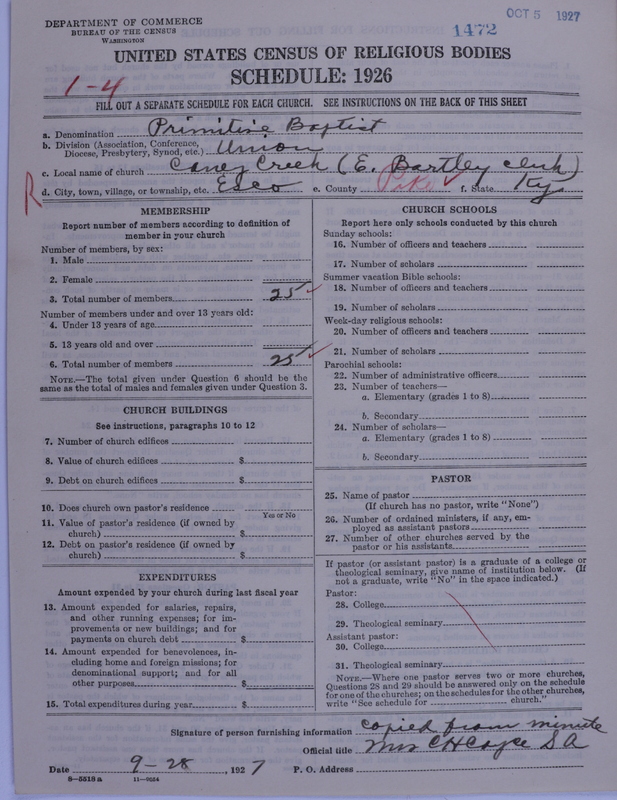 DEPARTMENT OF COMMERCE
BUREAU OF THE CENSUS
WASHINGTON
OCT 5 1927
1472
UNITED STATES CENSUS OF RELIGIOUS BODIES
SCHEDULE: 1926
1-4
FILL OUT A SEPARATE SCHEDULE FOR EACH CHURCH. SEE INSTRUCTIONS ON THE BACK OF THIS SHEET
a. Denomination Primitive Baptist
b. Division (Association, Conference, Diocese, Presbytery, Synod, etc.) Union
c. Local name of church Caney Creek (E. Bartley clerk)
R
d. City, town, village, or township, etc. Esco e. County Pike f. State Ky
MEMBERSHIP
Report number of members according to definition of
member in your church
Number of members, by sex:
1. Male
2. Female
3. Total number of members 25
Number of members under and over 13 years old:
4. Under 13 years of age
5. 13 years old and over
6. Total number of members 25
NOTE.—The total given under Question 6 should be the
same as the total of males and females given under Question 3.
CHURCH BUILDINGS
See instructions, paragraphs 10 to 12
7. Number of church edifices
8. Value of church edifices $
9. Debt on church edifices $
10. Does church own pastor's residence
Yes or No
11. Value of pastor's residence (if owned by
church) $
12. Debt on pastor's residence (if owned by
church) $
EXPENDITURES
Amount expended by your church during last fiscal year
13. Amount expended for salaries, repairs,
and other running expenses; for im-
provements or new buildings; and for
payments on church debt $
14. Amount expended for benevolences, in-
cluding home and foreign missions; for
denominational support; and for all
other purposes $
15. Total expenditures during year $
CHURCH SCHOOLS
Report here only schools conducted by this church
Sunday schools:
16. Number of officers and teachers
17. Number of scholars
Summer vacation Bible schools:
18. Number of officers and teachers
19. Number of scholars
Week-day religious schools:
20. Number of officers and teachers
21. Number of scholars
Parochial schools:
22. Number of administrative officers
23. Number of teachers—
a. Elementary (grades 1 to 8)
b. Secondary
24. Number of scholars—
a. Elementary (grades 1 to 8)
b. Secondary
PASTOR
25. Name of pastor
(If church has no pastor, write "None")
26. Number of ordained ministers, if any, em-
ployed as assistant pastors
27. Number of other churches served by the
pastor or his assistants
If pastor (or assistant pastor) is a graduate of a college or
theological seminary, give name of institution below. (If
not a graduate, write "No" in the space indicated.)
Pastor:
28. College
29. Theological seminary
Assistant pastor:
30. College
31. Theological seminary
NOTE.—Where one pastor serves two or more churches,
Questions 28 and 29 should be answered only on the schedule
for one of the churches; on the schedules for the other churches,
write "See schedule for church."
Signature of person furnishing information copied from minute
Official title Mrs CH Cayce S A
Date 9-28, 1927 P. O. Address
8-5518a 11-9024